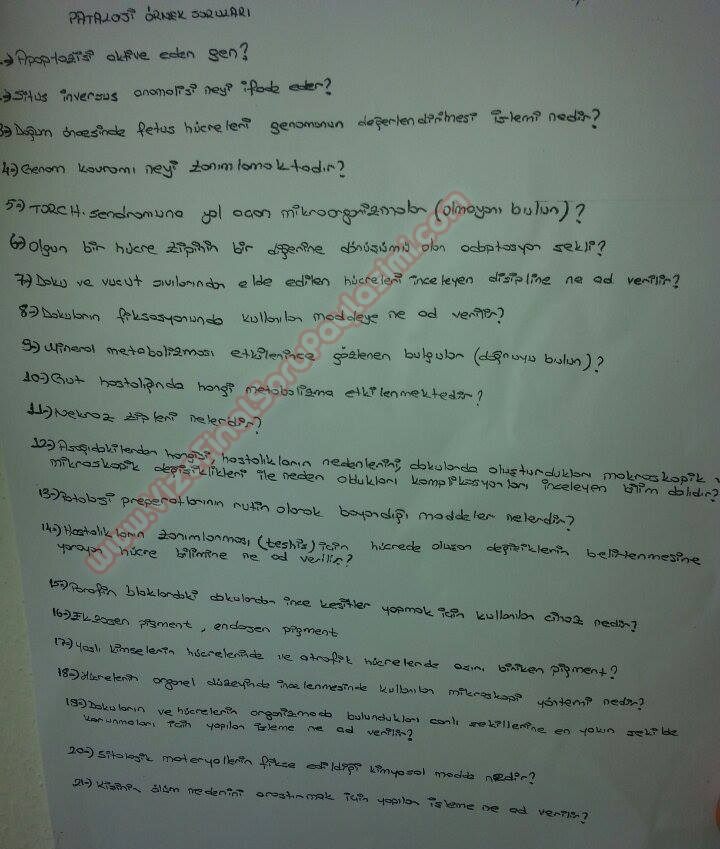 PATALOJİ ÖRNEK SORULARI
1-) Apoptozisi aktive eden gen?
2-) Situs inversus anomalisi neyi ifade eder?
3-) Doğum öncesinde fetus hücreleri genomunun değerlendirilmesi işlemi nedir?
4-) Genom kavramı neyi tanımlamaktadır?
5-) TORCH. sendromuna yol açan mikroorganizmalar (olmayanı bulun)?
6-) Olgun bir hücre tipinin bir diğerine dönüşümü olan adaptasyon şekli?
7-) Doku ve vücut sıvılarından elde edilen hücreleri inceleyen disipline ne ad verilir?
8-) Dokuların fiksasyonunda kullanılan maddeye ne ad verilir?
9-) Mineral metabolizması etkilenince gözlenen bulgular (doğruyu bulun)?
10-) Gut hastalığında hangi metabolizma etkilenmektedir?
11-) Nekroz tipleri nelerdir?
12-) Aşağıdakilerden hangisi, hastalıkların nedenlerini, dokularda oluşturdukları makroskopik v
mikroskopik değişiklikleri ile neden oldukları komplikasyonları inceleyen bilim dalıdır?
13-) Patoloji preperatlarının rutin olarak boyandığı maddeler nelerdir?
14-) Hastalıkların tanımlanması (teşhis) için hücrede oluşan değişiklerin belirlenmesine
yarayan hücre bilimine ne ad verilir?
15-) Parafin bloklardaki dokulardan ince kesitler yapmak için kullanılan cihaz nedir?
16-) Ekzojen pigment, endojen pigment
17-) Yaşlı kimselerin hücrelerinde ve atrofik hücrelerde aşırı biriken pigment?
18-) Hücrelerin organel düzeyinde incelenmesinde kullanılan mikroskopi yöntemi nedir?
19-) Dokuların ve hücrelerin organizmada bulundukları canlı şekillerine en yakın şekilde
korunmaları için yapılan işleme ne ad verilir?
20-) Sitolojik materyallerin fikse edildiği kimyasal madde nedir?
21-) Kişinin ölüm nedenini araştırmak için yapılan işleme ne ad verilir?
www.VizeFinalSoruPaylasimi.com